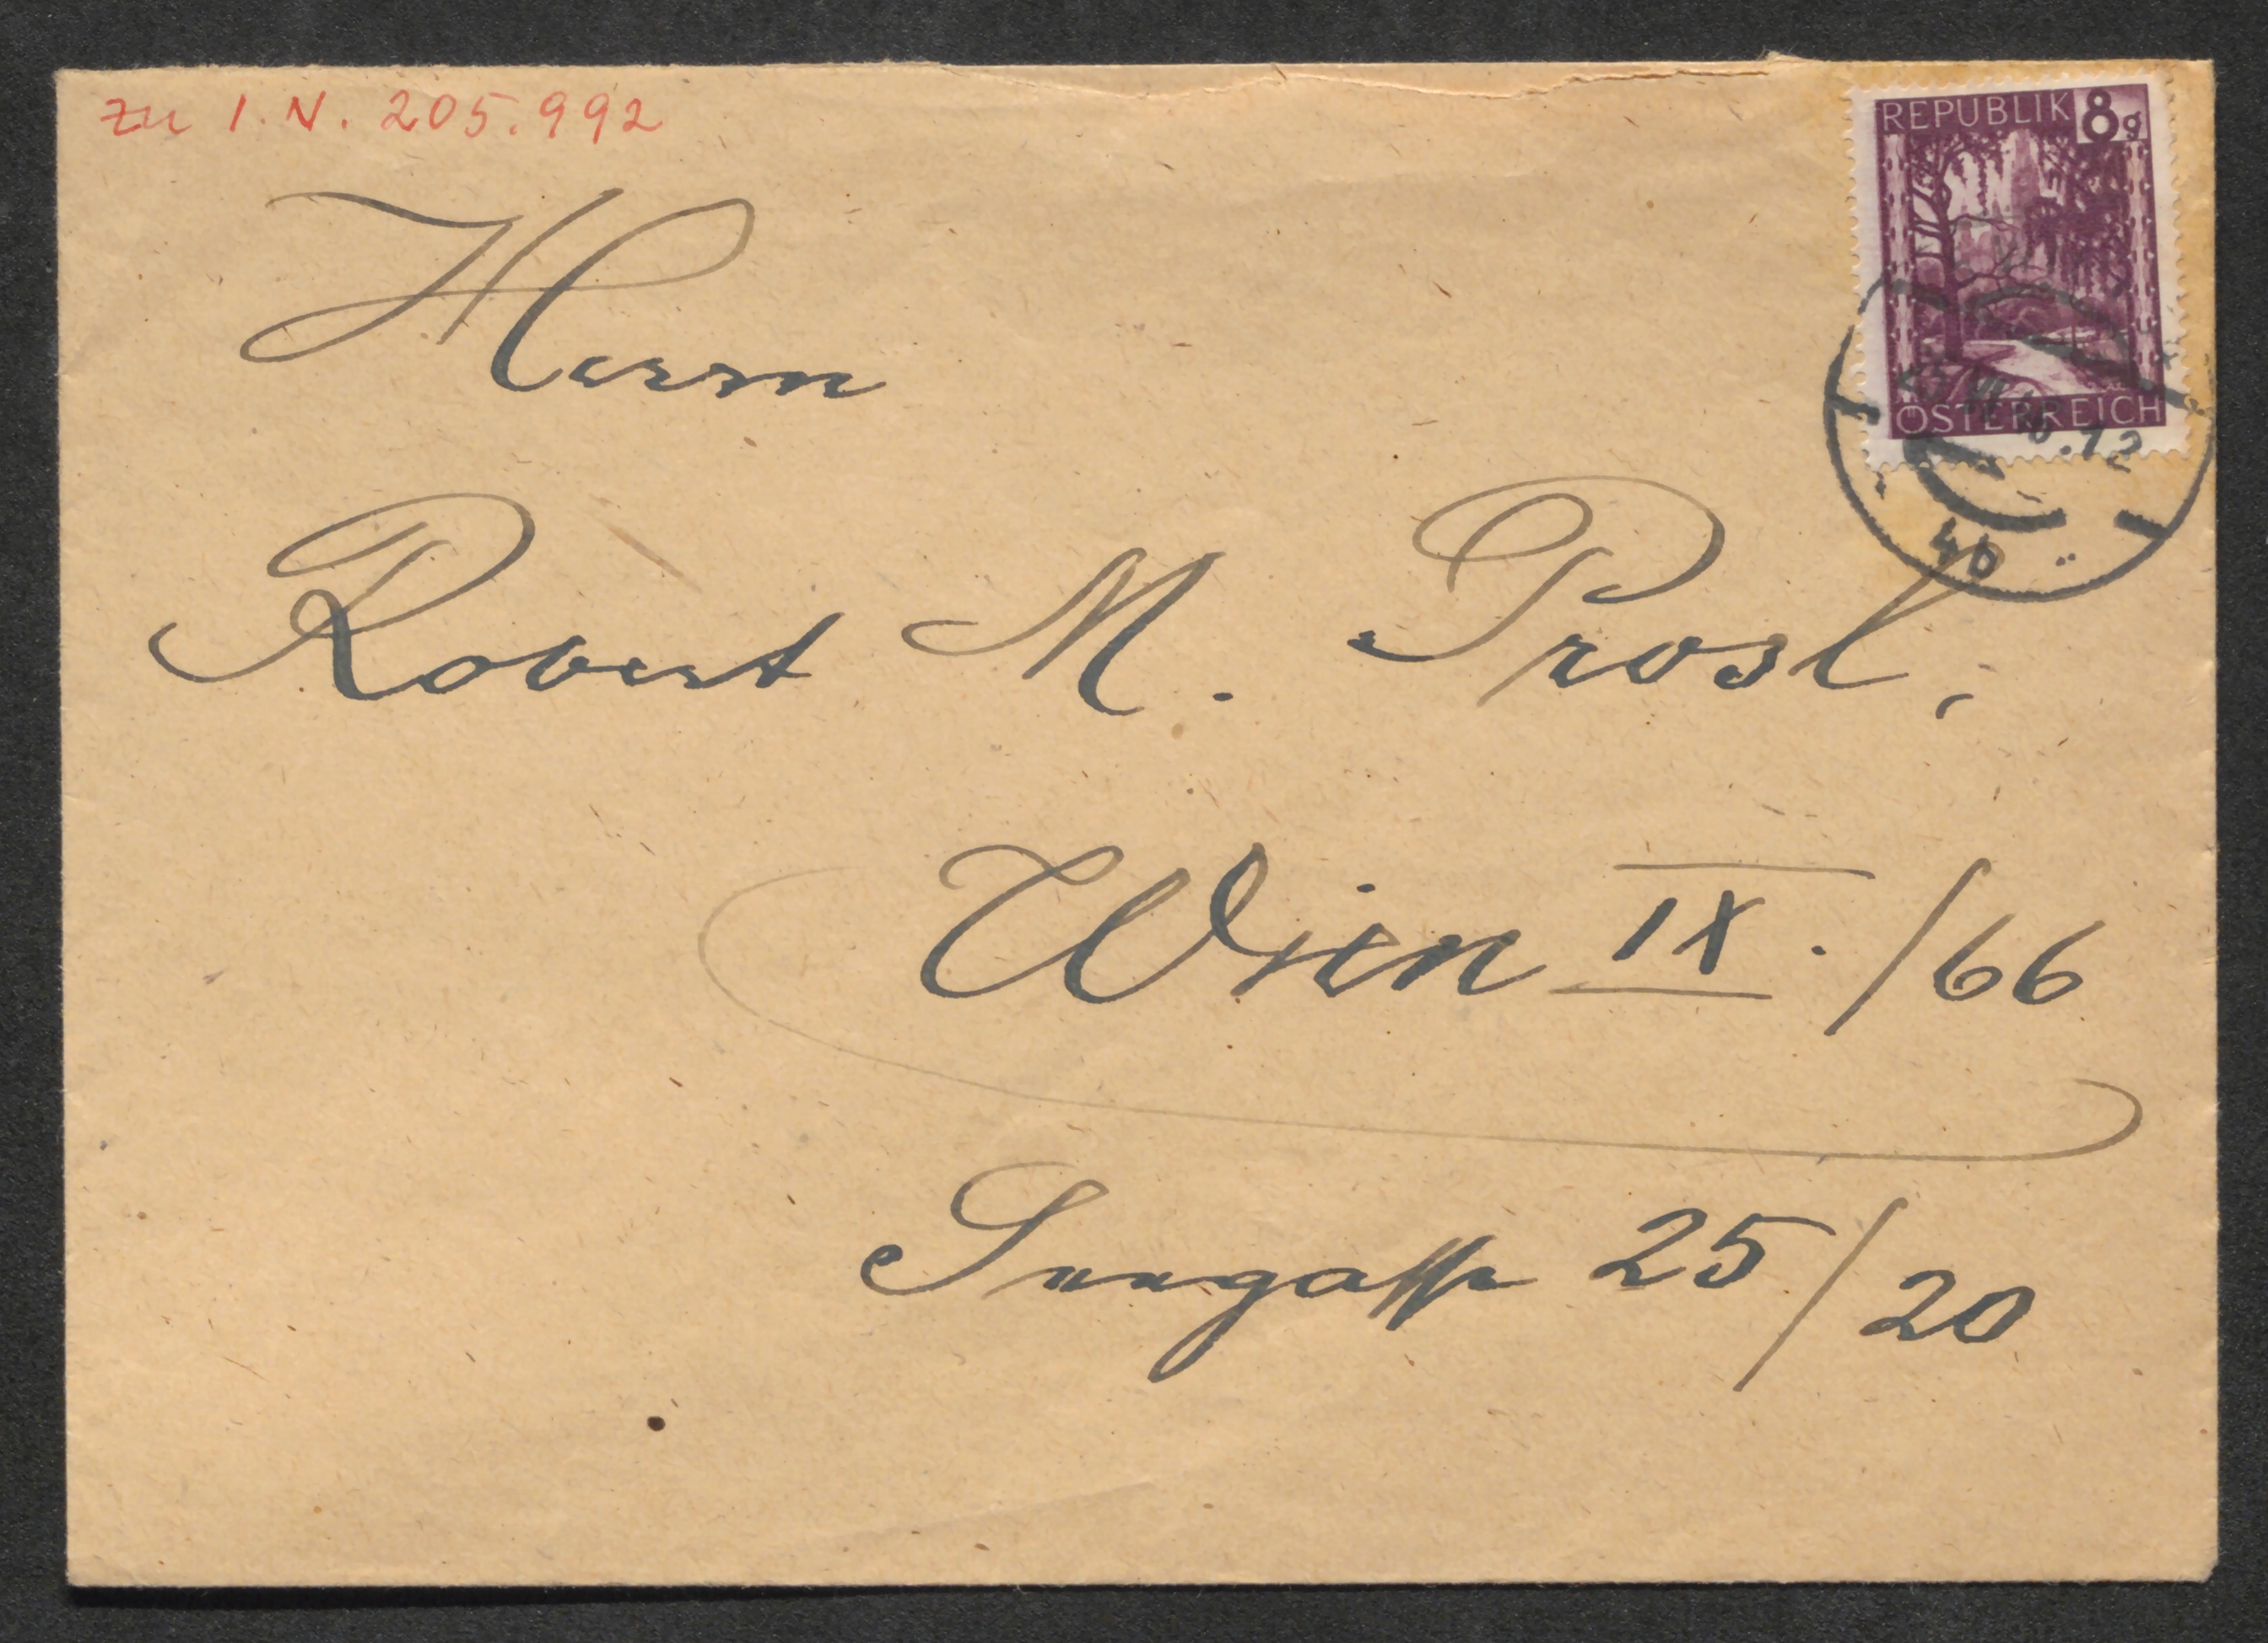 zu I.N. 205.992
REPUBLIK 8g
ÖSTERREICH
.12
40
Herrn
Robert M. Prosl,
Wien IX./66
Seegasse 25/20